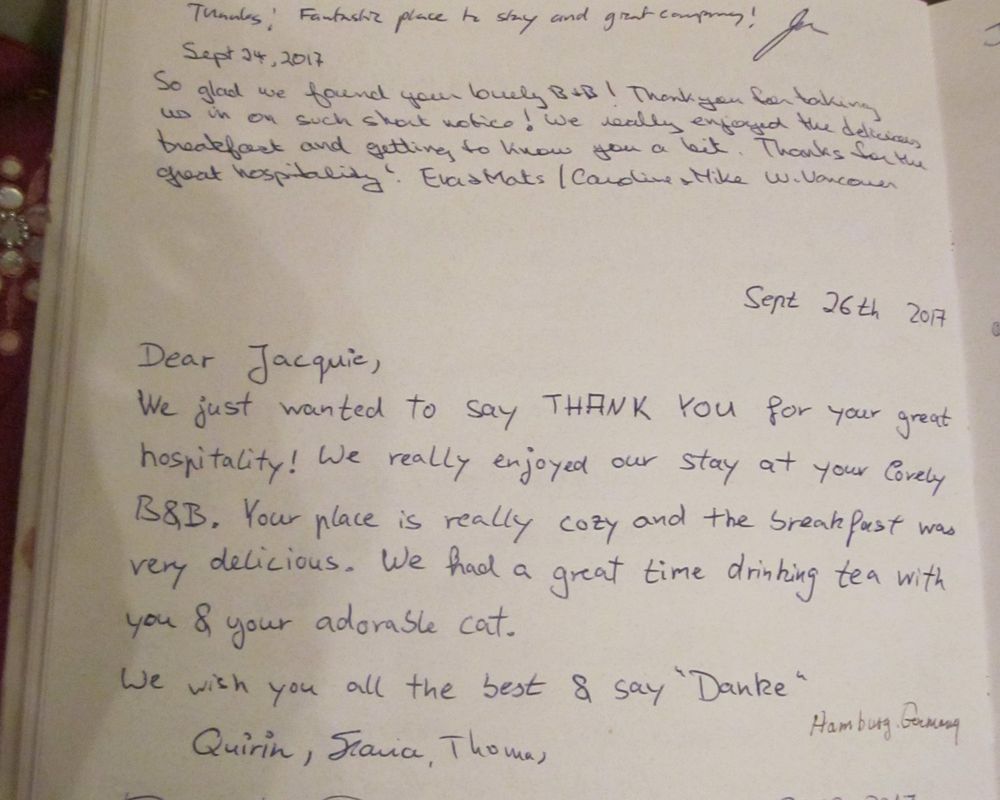 Thanks! Fantastic place to stay and great company!
Sept 24, 2017
So glad we found your lovely B+B! Thank you for taking
us in on such short notice! We really enjoyed the delicious
breakfast and getting to know you a bit. Thanks for the
great hospitality! Eva & Mats / Caroline & Mike W. Vancouver
Sept 26th 2017
Dear Jacquie,
We just wanted to say THANK YOU for your great
hospitality! We really enjoyed our stay at your lovely
B&B. Your place is really cozy and the breakfast was
very delicious. We had a great time drinking tea with
you & your adorable cat.
We wish you all the best & say "Danke"
Hamburg. Germany
Quirin, Thomas,
2017